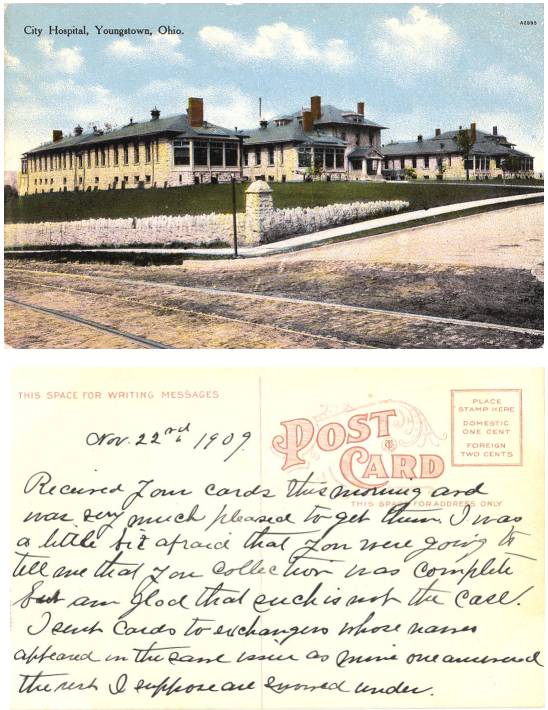 City Hospital, Youngstown, Ohio.
A2995
THIS SPACE FOR WRITING MESSAGES
POST CARD
PLACE
STAMP HERE
DOMESTIC
ONE CENT
FOREIGN
TWO CENTS
THIS SPACE FOR ADDRESS ONLY
Nov. 22nd 1909.
Received your cards this morning and
was very much pleased to get them. I was
a little bit afraid that you were going to
tell me that you collection was complete
but am glad that such is not the case.
I sent cards to exchangers whose names
appeared in the same issue as mine one answered
the rest I suppose are snowed under.